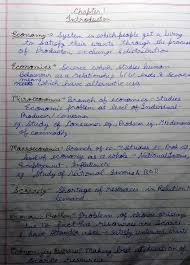 Chapter 1
Introduction
Economy → System in which people get a living
to satisfy their wants through the process
of Production, exchange & distribution
Economics → Science which studies human
Behaviour as a relationship b/w ends & scarce
means which have alternative uses
Microeconomics → Branch of economics - studies
Economic problem at level of Individual -
Producer / Consumer
eg Study of Consumer eq., Producer eq., 
of commodity
Macroeconomics → Branch of eco - studies
level of economy as a whole - National Income,
Employment, Inflation
eg Study of National Income & BOP
Scarcity → Shortage of resources in Relation
Demand
Economic Problem → Problem of choice arising
due to fact the resources are scarce
have alternative uses &
Economising Resources → Making best utilisation of
Resources